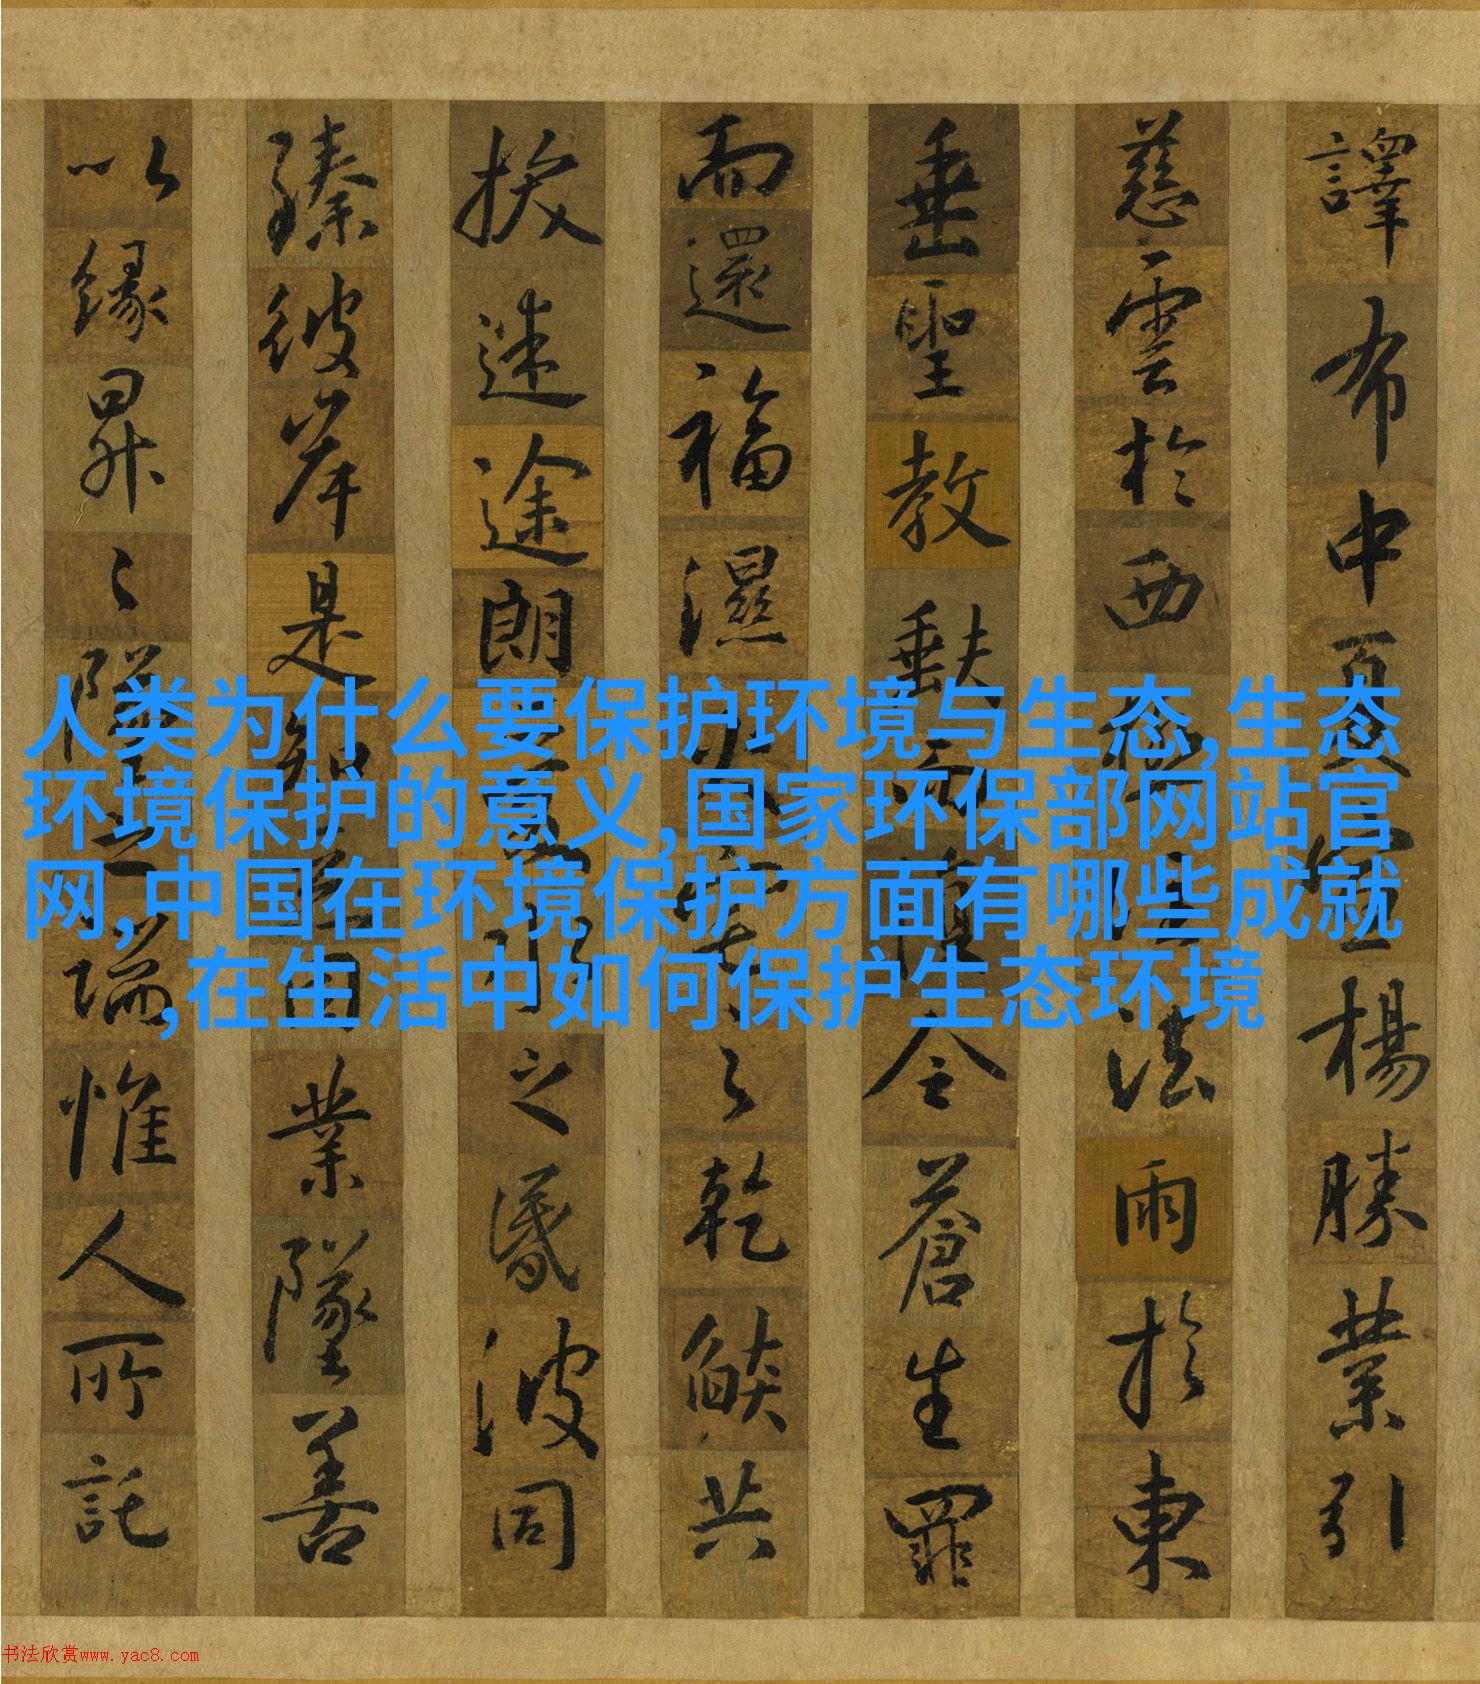 譯布中夏宣揚勝業引
慈雲於西極注法雨於東
垂聖教缺而復全蒼生罪
而還福濕火宅之乾燄共
拔迷途朗愛水之昏波同
臻彼岸是知惡因業墜善
以緣昇〻墜之端惟人所託
人类为什么要保护环境与生态,生态
环境保护的意义,国家环保部网站官
网,中国在环境保护方面有哪些成就
,在生活中如何保护生态环境
书法欣赏www.yac8.com